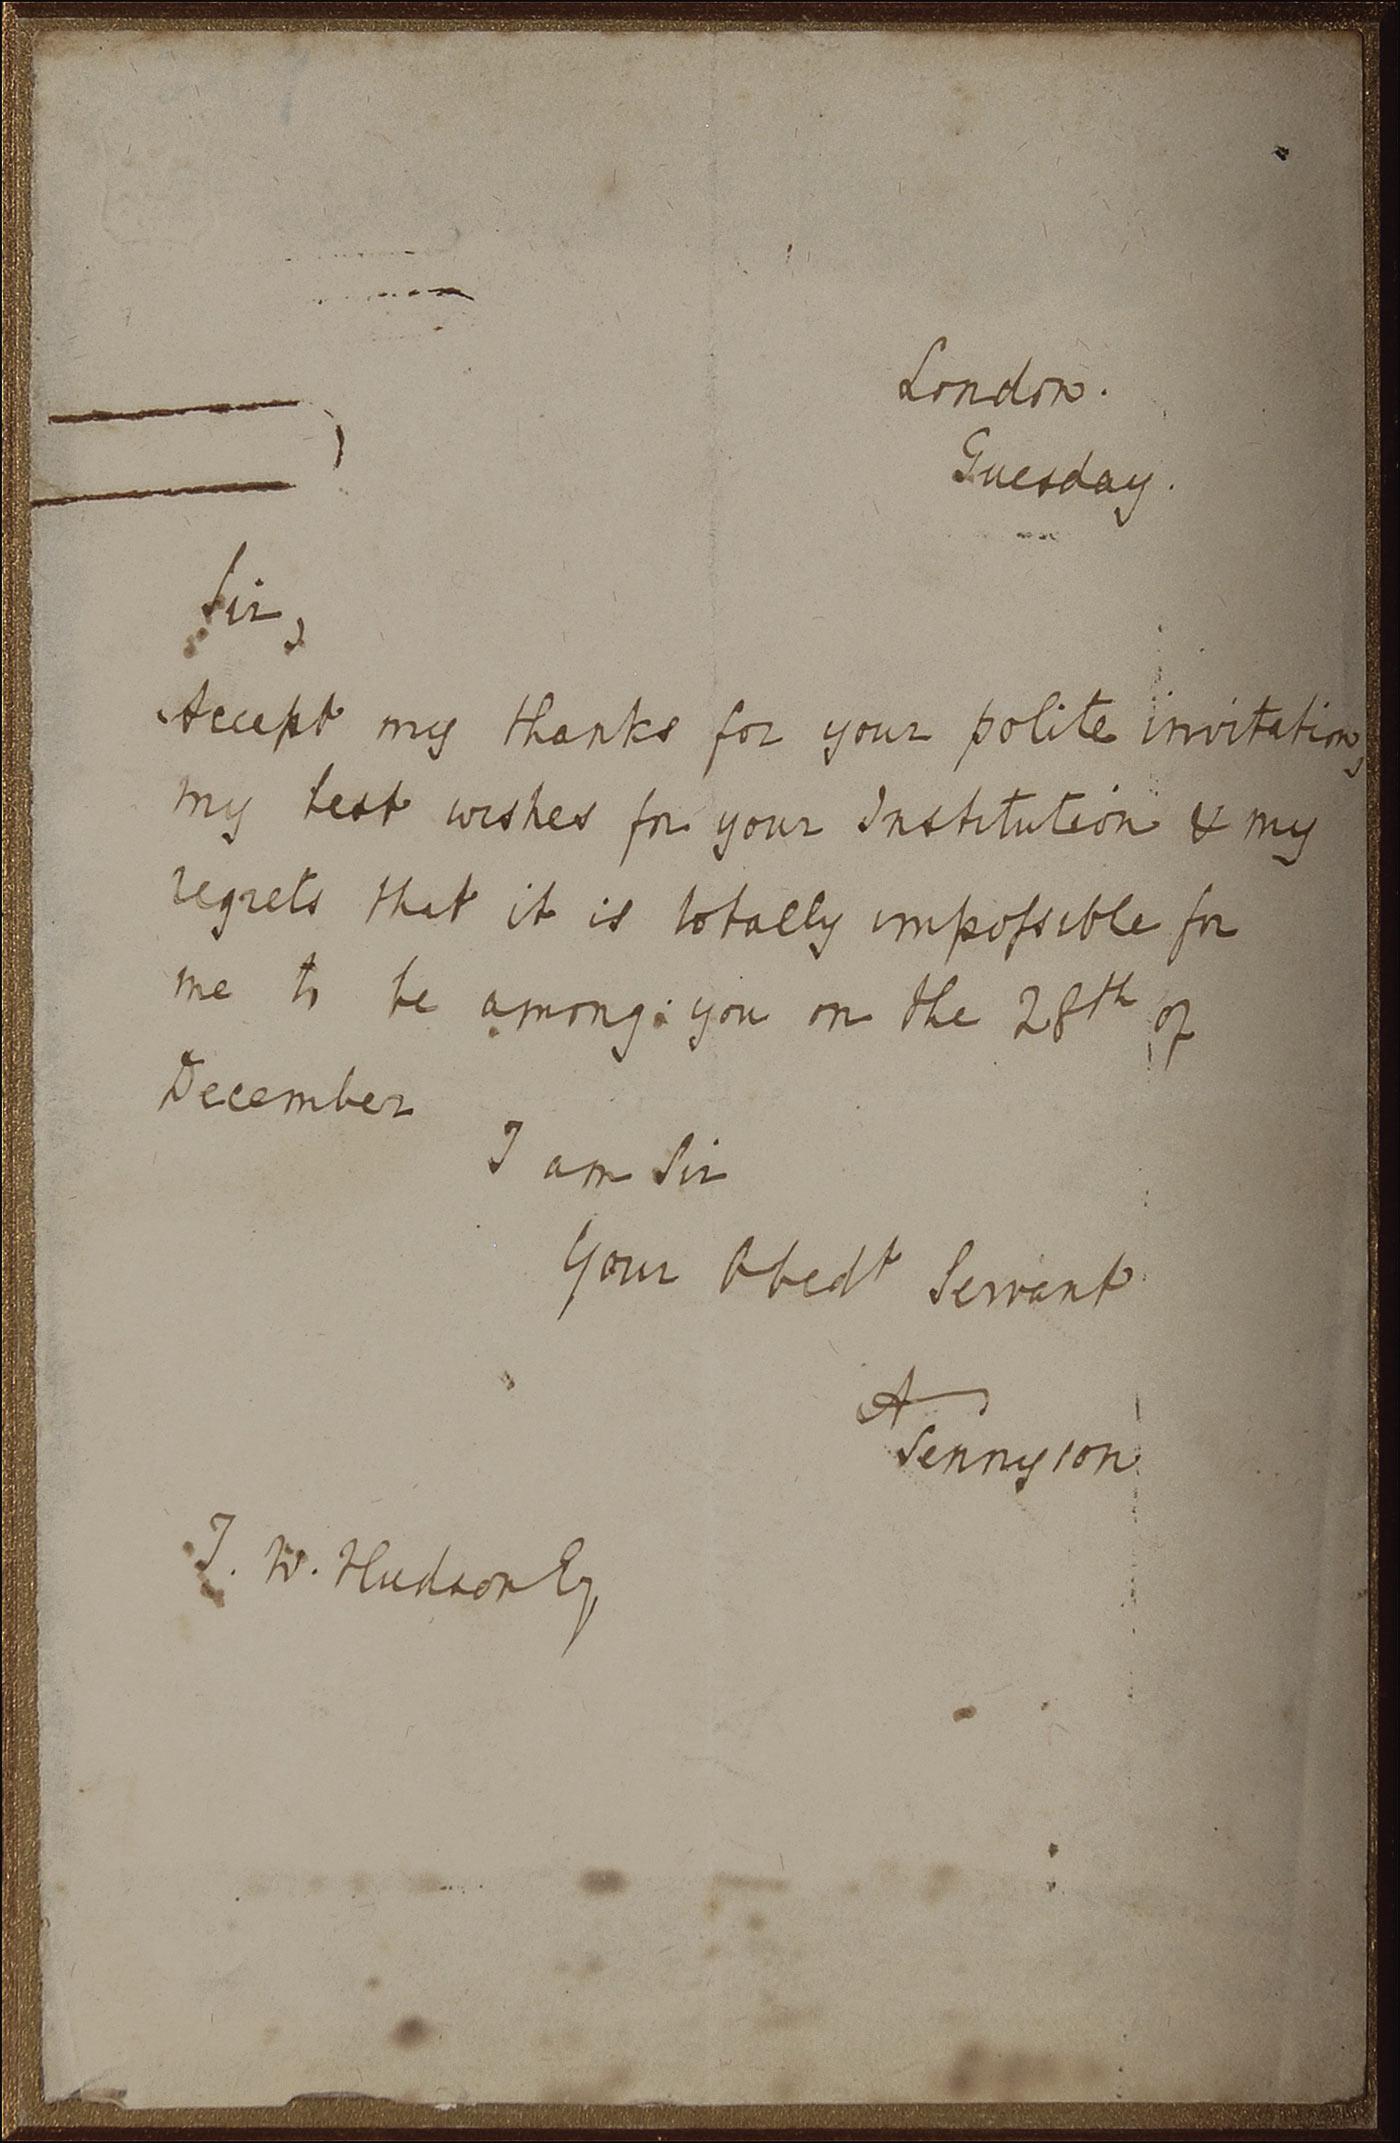 London.
Tuesday.
Sir,
Accept my thanks for your polite invitation,
my best wishes for your Institution & my
regrets that it is totally impossible for
me to be among you on the 28th of
December
I am Sir
Your Obedt Servant
A
Tennyson
T. W. Hudson Esq